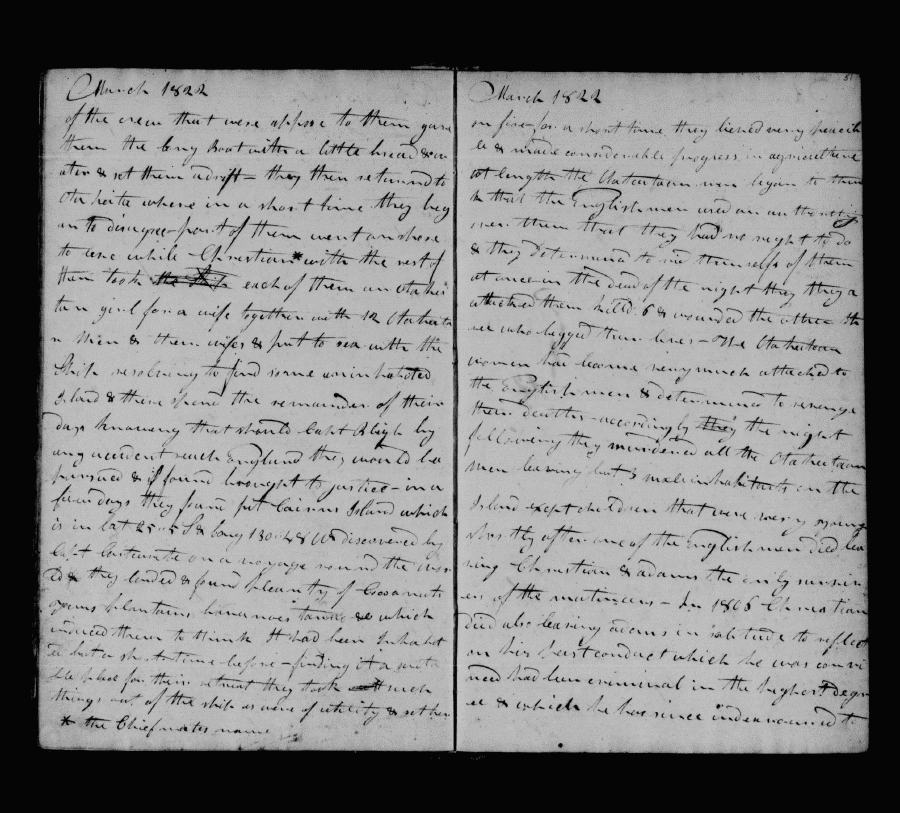 March 1822
of the crew that were oppose to them gave
them the long Boat with a little bread & w
ater & set them adrift – they then returned to
Otaheite where in a short time they beg
an to disagree – part of them went on shore
to live while Christian * with the rest of
them took the Ship each of them an Otahei
tan girl for a wife together with 12 Otaheita
n Men & them wifes & put to sea with the
Ship resolving to find some uninhabited
Island & there spend the remainder of their
days knowing that should Capt Bligh by
any accident reach England they would be
pursued & if found brought to justice – in a
few days they found pit Cairns Island which
is in lat 25 05 S & Long 130 W discovered by
Capt Carteret on a voyage round the wor
ld & they landed & found pleanty of Cocoanuts
yams plantins bananoes & which
induced them to think It had been Inhabit
ed but a short time before – finding it a suita
ble place for their retreat they took such
things out of the ship as were of utility & set her
* the Chief mates name
51
March 1822
on fire for a short time they lieved very peacib
le & made considerable progress in agriculture
at length the Otaheitaan men began to think
that the Englishmen used an authority
over them that they had no right to do
& they determined to rid themselfs of them
at once in the dead of the night they
attacked them killd 6 & wounded the other
who begged their lives – The Otaheitaan
women had become very much attached to
the Englishmen & determined to revenge
their deaths accordingly they the night
following they murdered all the Otaheitaan
men leaving but 3 male inhabitants on the
Island exept children that were very young
shortly after one of the Englishmen died lea
ving Christian & adams the only surviv
ers of the mutineers – In 1806 Christian
died also leaving adams in solitude to reflect
on his past conduct which he was convi
nced had been criminal in the highest degr
ee & which he has since indeavoured to